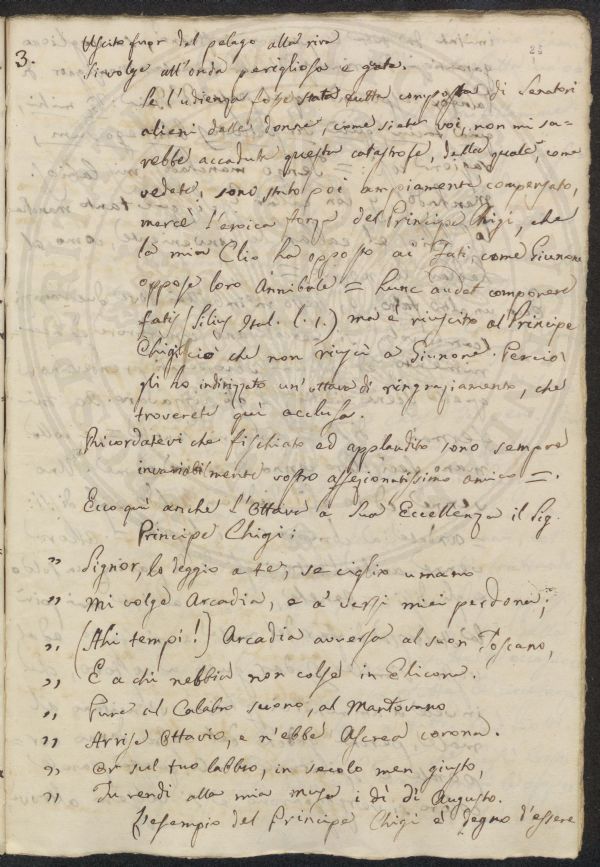 3.
25
Uscito fuor del pelago alla riva
Si volge all'onda perigliosa e guata.
Se l'udienza fosse stata tutta composta di Senatori
alieni dalle donne, come siete voi, non mi sa-
rebbe accaduta questa catastrofe, della quale, come
vedete, sono stato poi ampiamente compensato,
mercè l'eroica forza del Principe Chigi, che
la mia Clio ha opposto ai Fati, come Giunone
oppose loro Annibale = hunc audet componere
fatis (Silius Ital. l. 1.) ma è riuscito al Principe
Chigi ciò che non riuscì a Giunone. Perciò
gli ho indirizzato un'ottava di ringraziamento, che
troverete quì acclusa.
Ricordatevi che fischiato ed applaudito sono sempre
invariabilmente vostro affezionatissimo amico =.
Ecco quì anche l'Ottava a Sua Eccellenza il Sig.
Principe Chigi:
" Signor, lo deggio a te, se ciglio umano
" Mi volge Arcadia, e a' versi miei perdona;
" (Ahi tempi!) Arcadia avversa al suon Toscano,
" E a chi nebbia non colse in Elicona.
" Pure al Calabro suono, al Mantovano
" Arrise Ottavio, e n'ebbe Ascrea corona.
" Or sul tuo labbro, in secolo men giusto,
" Tu rendi alla mia musa i dì di Augusto.
L'esempio del Principe Chigi è degno d'essere